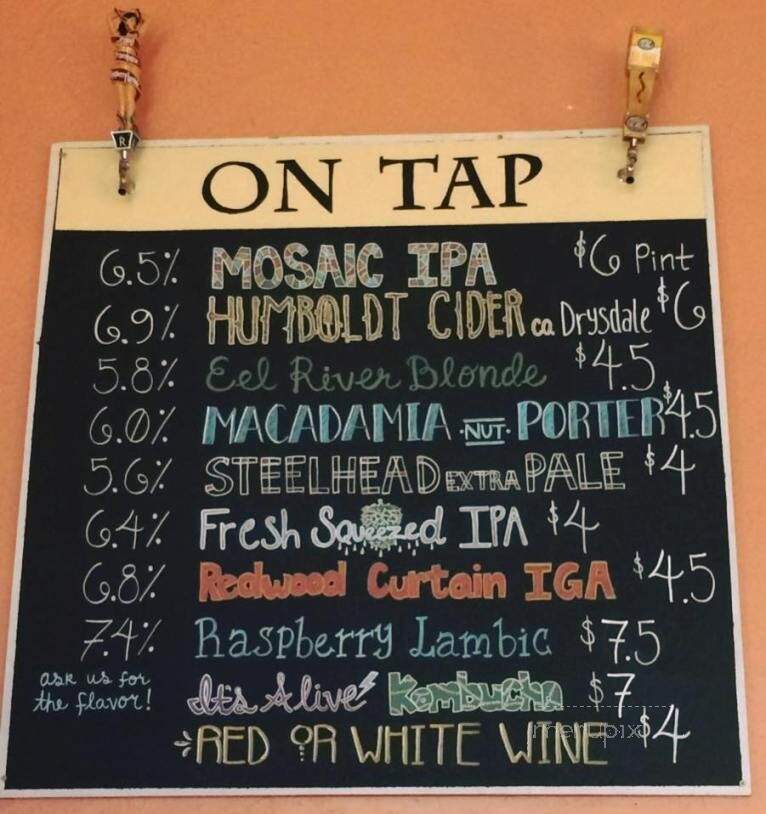 ON TAP
6.5% MOSAIC IPA $6 Pint
6.9% HUMBOLDT CIDER co. Drysdale $6
5.8% Eel River Blonde $4.5
6.0% MACADAMIA NUT PORTER $4.5
5.6% STEELHEAD EXTRA PALE $4
6.4% Fresh Squeezed IPA $4
6.8% Redwood Curtain IGA $4.5
7.4% Raspberry Lambic $7.5
ask us for
the flavor! It's Alive Kombucha $7
RED OR WHITE WINE $4
menupix